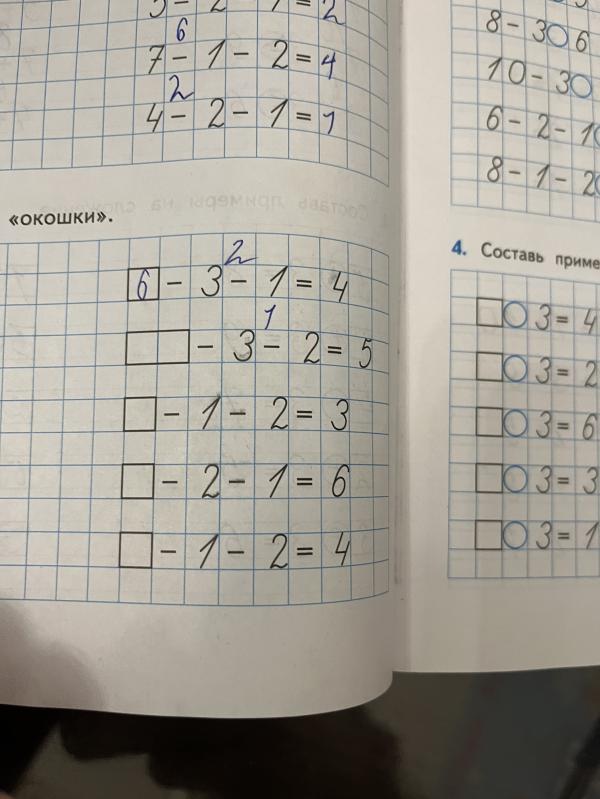 5 − 2 − 1 = 2
6
7 − 1 − 2 = 4
2
4 − 2 − 1 = 1
«окошки».
2
6 − 3 − 1 = 4
1
− 3 − 2 = 5
− 1 − 2 = 3
− 2 − 1 = 6
− 1 − 2 = 4
8 − 3 6
10 − 3
6 − 2 − 1
8 − 1 − 2
4. Составь приме
3 = 4
3 = 2
3 = 6
3 = 3
3 = 1